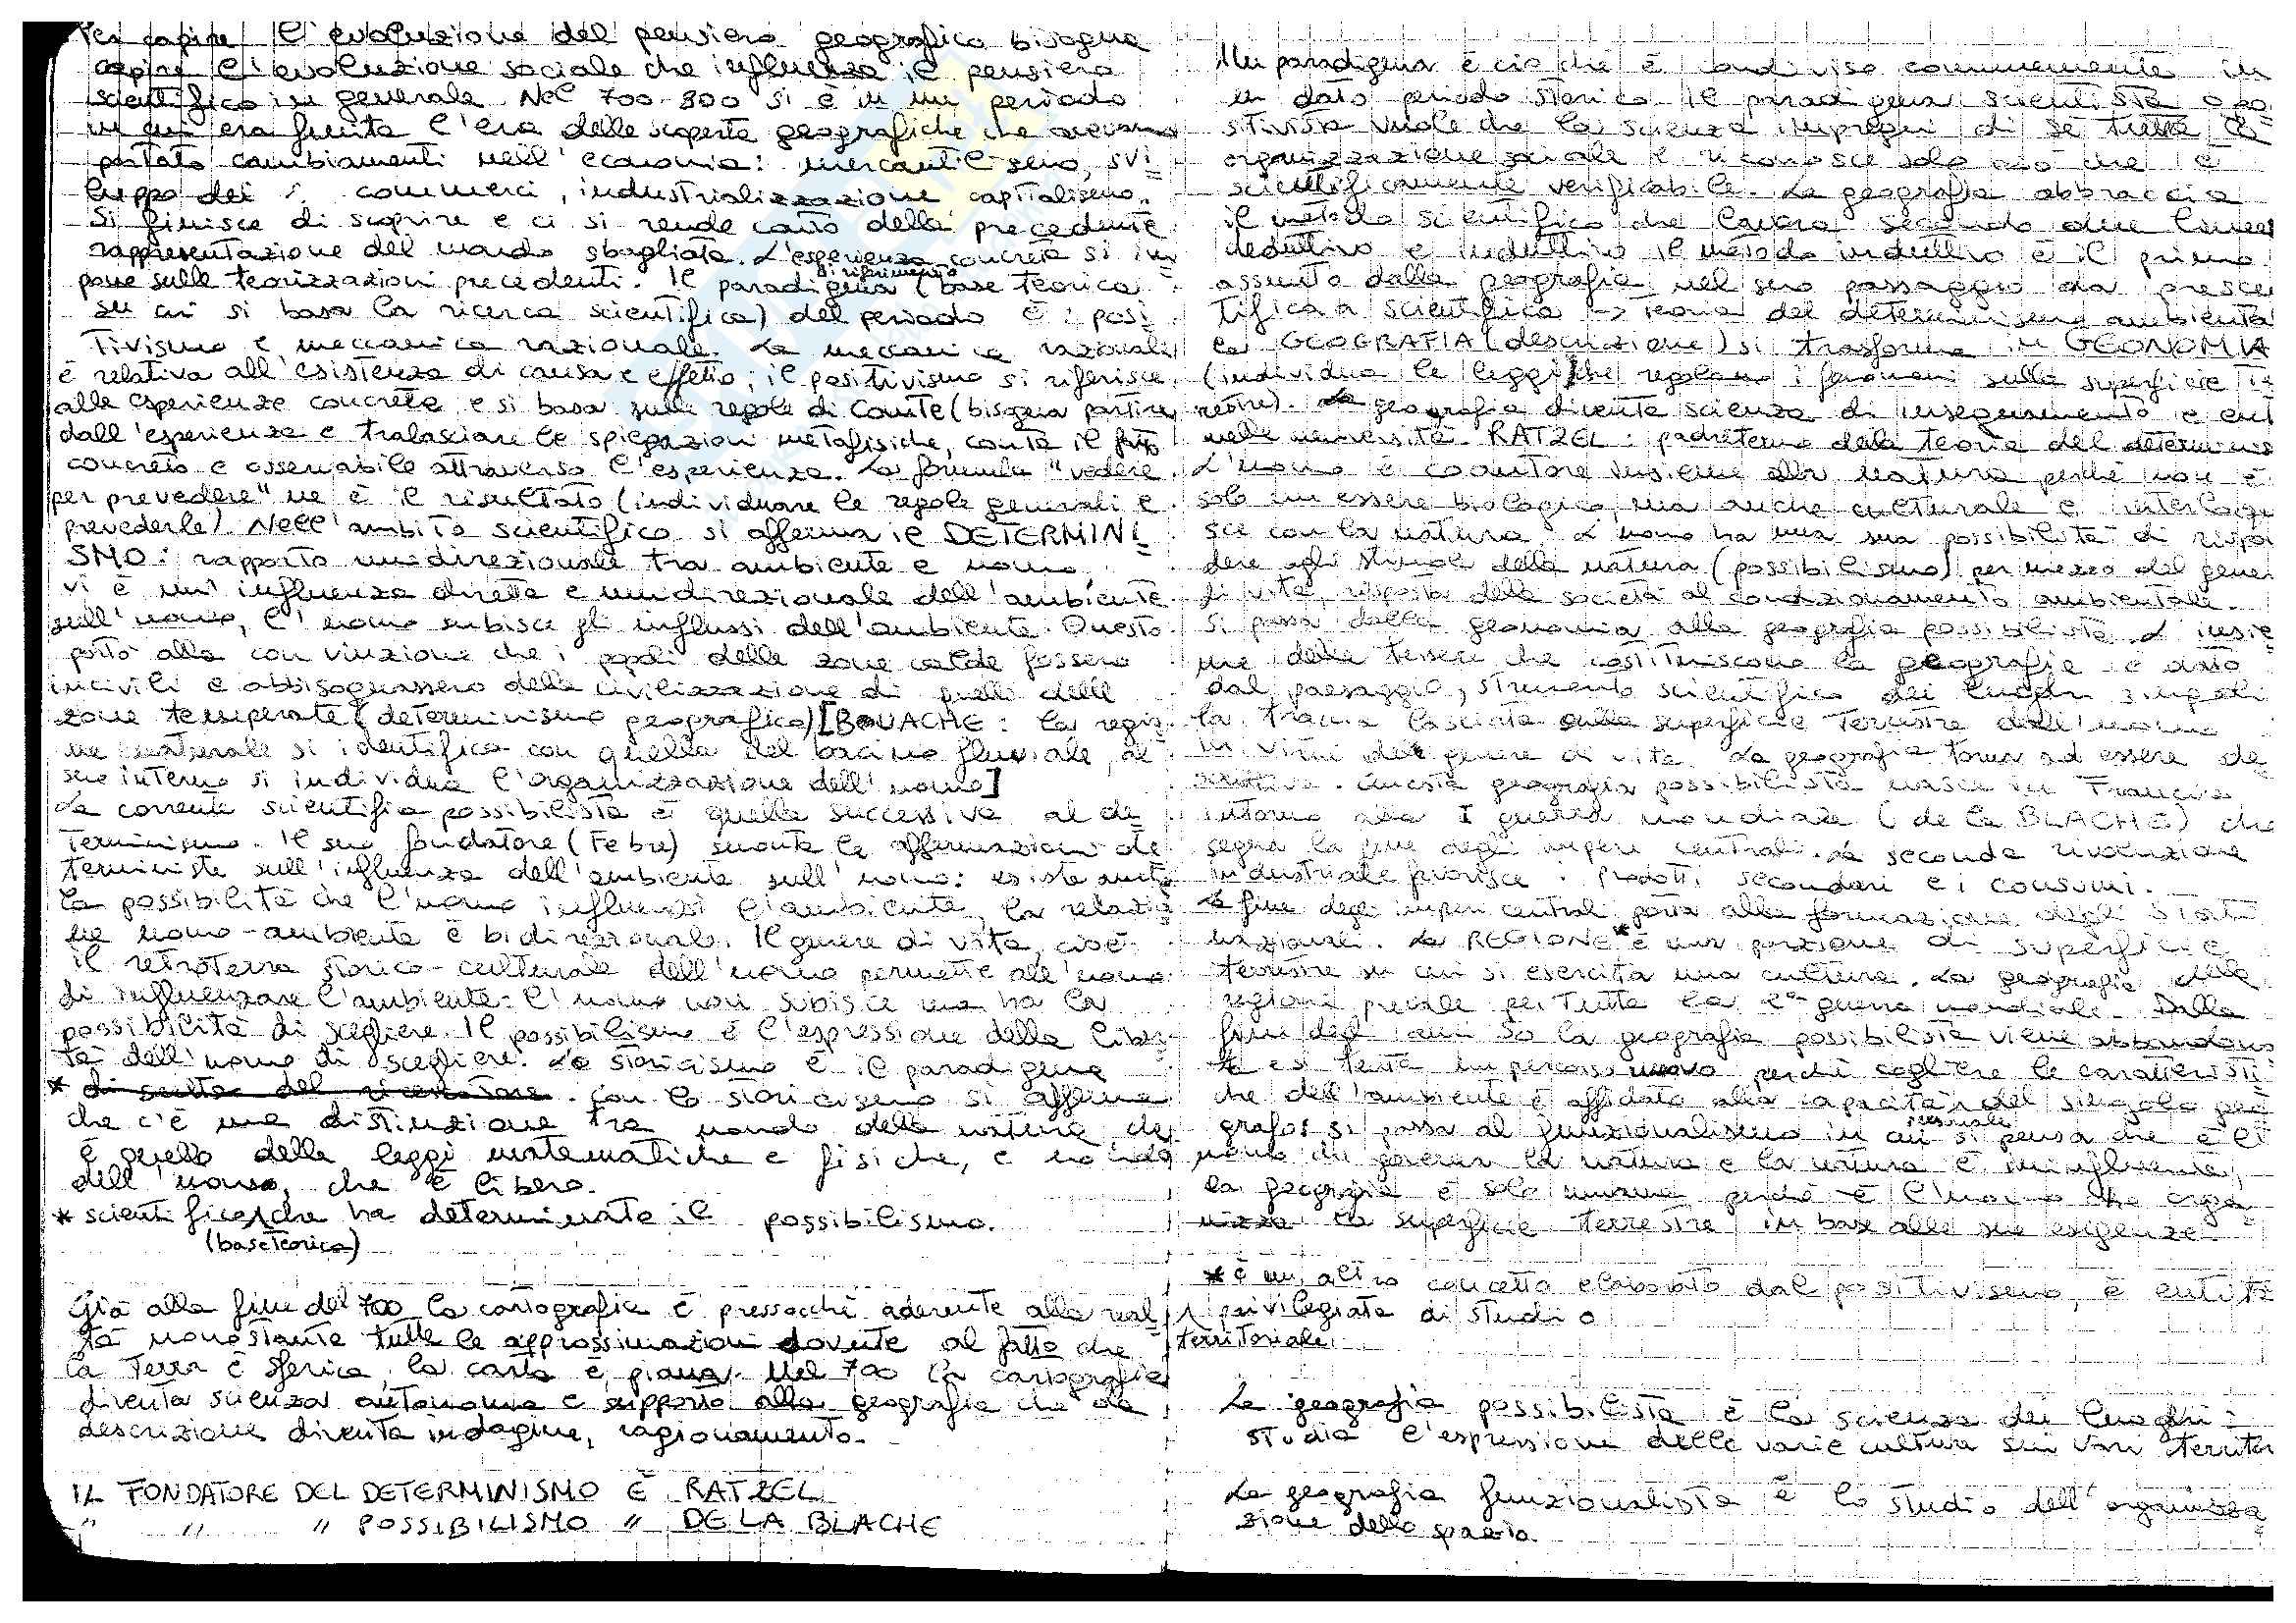 Per capire l'evoluzione del pensiero geografico bisogna
capire l'evoluzione sociale che influenza il pensiero
scientifico in generale. Nel 700-800 si è in un periodo
in cui era finita l'era delle scoperte geografiche che avevano
portato cambiamenti nell'economia: mercantilismo, svi
luppo dei commerci, industrializzazione capitalismo.
Si finisce di scoprire e ci si rende conto della precedente
rappresentazione del mondo sbagliata. L'esperienza concreta si im
pone sulle teorizzazioni precedenti. Il paradigma (base teorica
di riferimento
su cui si basa la ricerca scientifica) del periodo è: posi
tivismo e meccanica razionale. La meccanica razionale
è relativa all'esistenza di causa e effetto; il positivismo si riferisce
alle esperienze concrete e si basa sulle regole di Comte (bisogna partire
dall'esperienza e tralasciare le spiegazioni metafisiche, conta il fatto
concreto e osservabile attraverso l'esperienza. La formula "vedere
per prevedere" ne è il risultato (individuare le regole generali e
prevederle). Nell'ambito scientifico si afferma il DETERMINI
SMO: rapporto unidirezionale tra ambiente e uomo,
vi è un'influenza diretta e unidirezionale dell'ambiente
sull'uomo, l'uomo subisce gli influssi dell'ambiente. Questo
portò alla convinzione che i popoli delle zone calde fossero
incivili e abbisognassero della civilizzazione di quelli delle
zone temperate (determinismo geografico) [BOUACHE: la regio
ne naturale si identifica con quella del bacino fluviale, al
suo interno si individua l'organizzazione dell'uomo]
La corrente scientifica possibilista è quella successiva al de
terminismo. Il suo fondatore (Febre) smonta le affermazioni de
terministe sull'influenza dell'ambiente sull'uomo: esiste anche
la possibilità che l'uomo influenzi l'ambiente, la relazio
ne uomo-ambiente è bidirezionale. Il genere di vita, cioè
il retroterra storico-culturale dell'uomo permette all'uomo
di influenzare l'ambiente: l'uomo non subisce ma ha la
possibilità di scegliere. Il possibilismo è l'espressione della liber
tà dell'uomo di scegliere. Lo storicismo è il paradigma
* di scelta del ricercatore. Con lo storicismo si afferma
che c'è una distinzione tra mondo della natura, che
è quello delle leggi matematiche e fisiche, e mondo
dell'uomo, che è libero.
* scientifico che ha determinato il possibilismo.
(base teorica)
Già alla fine del 700 la cartografia è pressocché aderente alla real
tà nonostante tutte le approssimazioni dovute al fatto che
la Terra è sferica, la carta è piana. Nel 700 la cartografia
diventa scienza autonoma e supporto alla geografia che da
descrizione diventa indagine, ragionamento.
IL FONDATORE DEL DETERMINISMO È RATZEL
" " " POSSIBILISMO " DE LA BLACHE
Un paradigma è ciò che è condiviso comunemente in
un dato periodo storico. Il paradigma scientista o po
sitivista vuole che la scienza impregni di sé tutta la
organizzazione sociale e riconosce solo ciò che è
scientificamente verificabile. La geografia abbraccia
il metodo scientifico che lavora secondo due linee
deduttivo e induttivo il metodo induttivo è il primo
assunto dalla geografia nel suo passaggio da prescien
tifica a scientifica → teoria del determinismo ambienta
la GEOGRAFIA (descrizione) si trasforma in GEONOMIA
(individua le leggi che regolano i fenomeni sulla superficie te
restre). La geografia diventa scienza di insegnamento e entra
nelle università. RATZEL: padreterno della teoria del determinis
L'uomo è coautore insieme alla natura perché non è
solo un essere biologico, ma anche culturale e interloqui
sce con la natura. L'uomo ha una sua possibilità di rispon
dere agli stimoli della natura (possibilismo) per mezzo del gene
di vita, risposta della società al condizionamento ambientale.
Si passa dalla geonomia alla geografia possibilista. L'insie
me delle tessere che costituiscono la geografia è dato
dal paesaggio, strumento scientifico dei luoghi singoli
la traccia lasciata sulla superficie terrestre dall'uomo
in virtù del genere di vita. La geografia torna ad essere de
scrittiva. Questa geografia possibilista nasce in Francia
intorno alla I guerra mondiale (de la BLACHE) che
segna la fine degli imperi centrali. La seconda rivoluzione
industriale favorisce i prodotti secondari e i consumi.
La fine degli imperi centrali porta alla formazione degli Stati
nazionali. La REGIONE* è una porzione di superficie
terrestre su cui si esercita una cultura. La geografia delle
regioni prevale per tutta la 2ª guerra mondiale. Dalla
fine degli anni 50 la geografia possibilista viene abbandona
ta e si tenta un percorso nuovo perché cogliere le caratteristi
che dell'ambiente è affidato alla capacità del singolo geo
grafo: si passa al funzionalismo in cui si pensa che è l'
uomo a governare la natura e la natura è ininfluente,
la geografia è solo umana perché è l'uomo che orga
nizza la superficie terrestre in base alle sue esigenze
* è un altro concetto elaborato dal positivismo, è entità
privilegiata di studio
territoriale
La geografia possibilista è la scienza dei luoghi:
studia l'espressione delle varie cultura sui vari territor
La geografia funzionalista è lo studio dell'organizza
zione dello spazio.